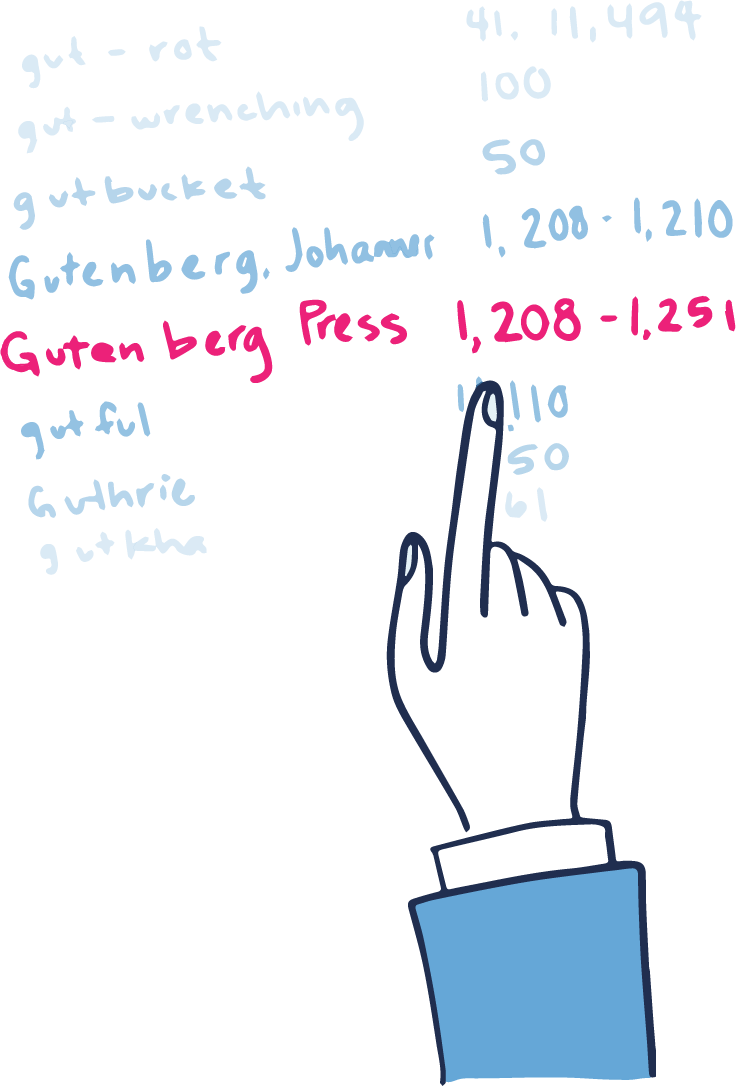 gut-rot 41. 11,494
gut-wrenching 100
gutbucket 50
Gutenberg, Johannes 1,208-1,210
Gutenberg Press 1,208-1,251
gutful 110
Guthrie 50
gutkha 61